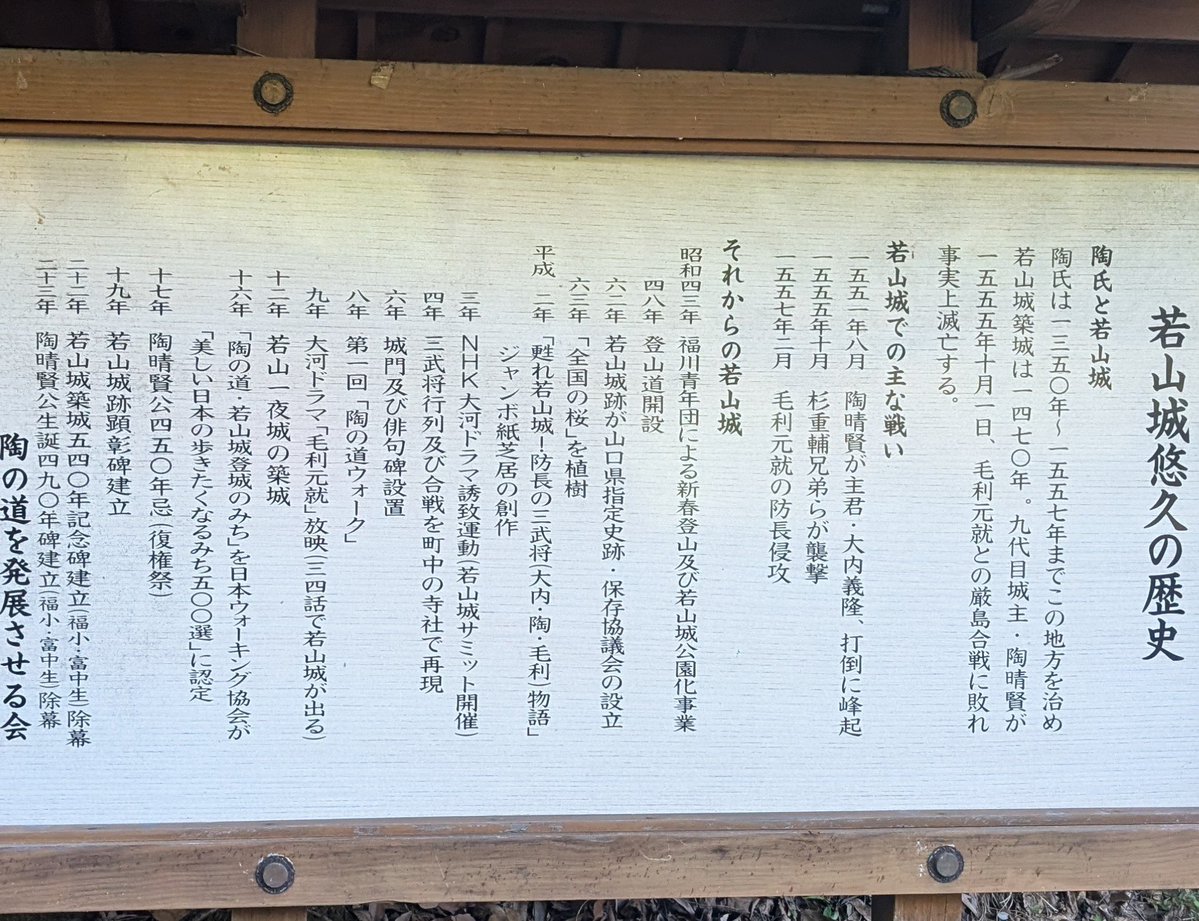 若山城悠久の歴史
陶氏と若山城
陶氏は一三五〇年～一五五七年までこの地方を治め
若山城築城は一四七〇年。九代目城主・陶晴賢が
一五五五年十月一日、毛利元就との厳島合戦に敗れ
事実上滅亡する。
若山城での主な戦い
一五五一年八月　陶晴賢が主君・大内義隆、打倒に峰起
一五五五年十月　杉重輔兄弟らが襲撃
一五五七年二月　毛利元就の防長侵攻
それからの若山城
昭和四三年　福川青年団による新春登山及び若山城公園化事業
四八年　登山道開設
六二年　若山城跡が山口県指定史跡・保存協議会の設立
六三年　「全国の桜」を植樹
平成　二年　「甦れ若山城ー防長の三武将(大内・陶・毛利)物語」
ジャンボ紙芝居の創作
三年　ＮＨＫ大河ドラマ誘致運動(若山城サミット開催)
四年　三武将行列及び合戦を町中の寺社で再現
六年　城門及び俳句碑設置
八年　第一回「陶の道ウォーク」
九年　大河ドラマ「毛利元就」放映(三四話で若山城が出る)
十二年　若山一夜城の築城
十六年　「陶の道・若山城登城のみち」を日本ウォーキング協会が
「美しい日本の歩きたくなるみち五〇〇選」に認定
十七年　陶晴賢公四五〇年忌(復権祭)
十九年　若山城跡顕彰碑建立
二十二年　若山城築城五四〇年記念碑建立(福小・富中生)除幕
二十三年　陶晴賢公生誕四九〇年碑建立(福小・富中生)除幕
陶の道を発展させる会